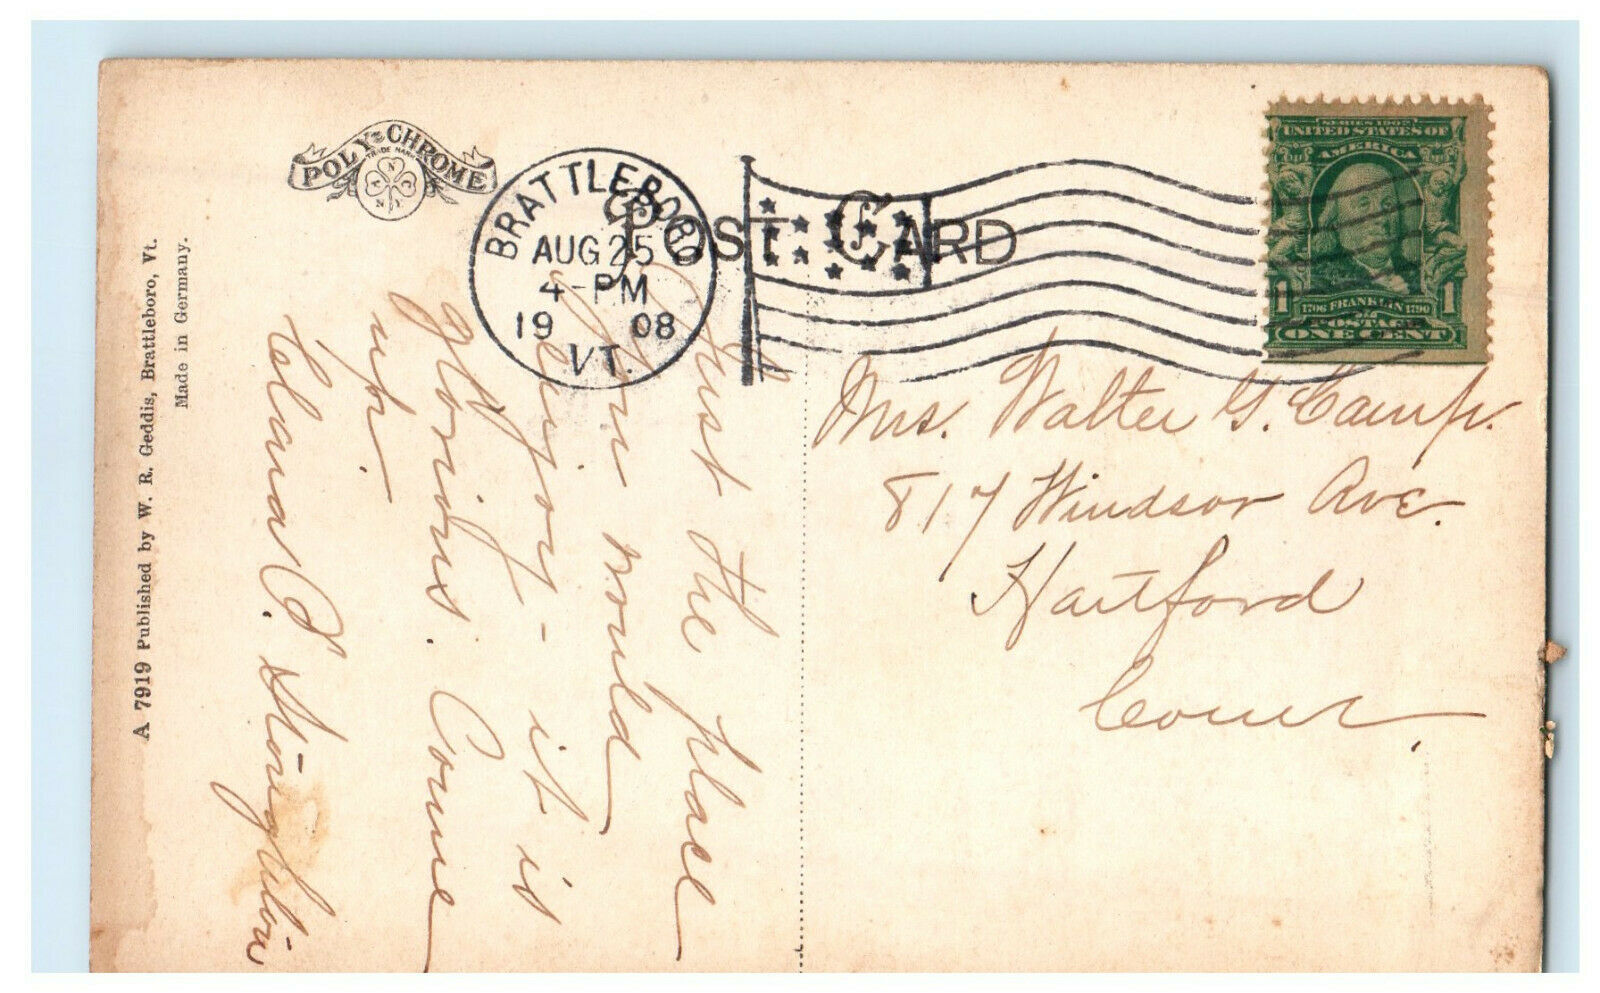 POLY-CHROME
TRADE NAME
POST CARD
BRATTLEBORO
AUG 25
4-PM
19 08
VT.
SERIES 1902
UNITED STATES OF
AMERICA
1706 FRANKLIN 1790
1 1
POSTAGE
ONE CENT
A 7919 Published by W. R. Geddis, Brattleboro, Vt.
Made in Germany.
Just the place
you would
enjoy - it is
glorious. Come
up.
Mrs. Walter G. Camp.
817 Windsor Ave.
Hartford
Conn.